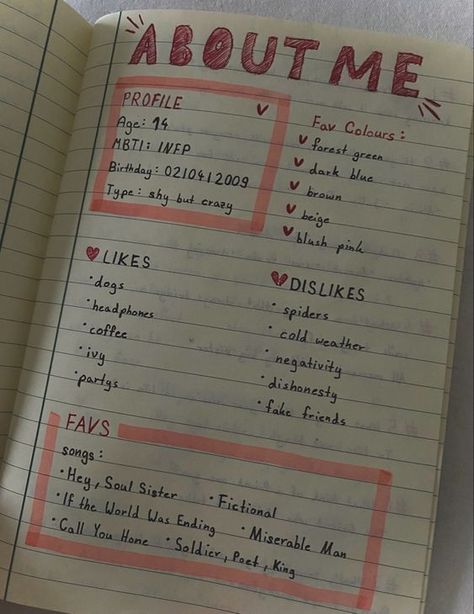 ABOUT ME
PROFILE
Age: 14
MBTI: INFP
Birthday: 02/04/2009
Type: shy but crazy
Fav Colours:
forest green
dark blue
brown
beige
blush pink
LIKES
• dogs
• headphones
• coffee
• ivy
• partys
DISLIKES
• spiders
• cold weather
• negativity
• dishonesty
• fake friends
FAVS
songs:
• Hey, Soul Sister • Fictional
• If the World Was Ending • Miserable Man
• Call You Home • Soldier, Poet, King